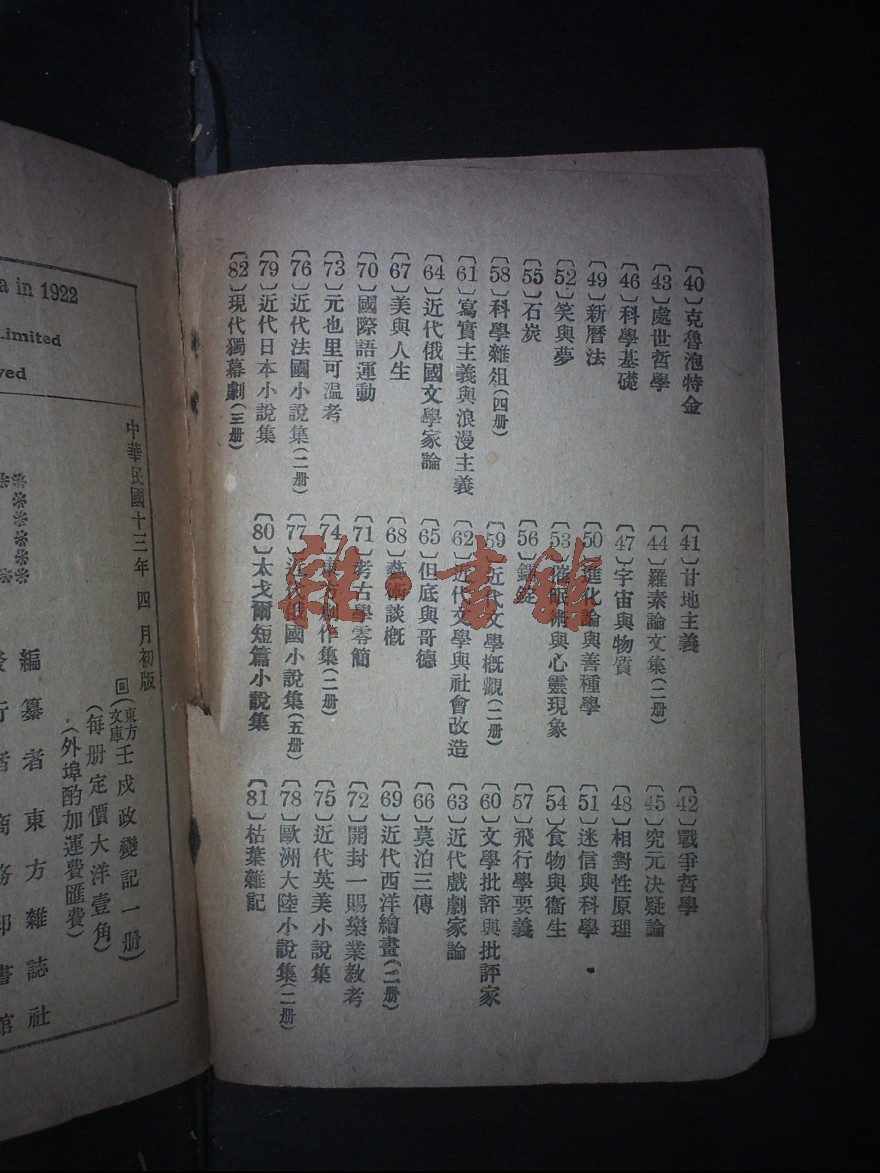 〔40〕克魯泡特金
〔41〕甘地主義
〔42〕戰爭哲學
〔43〕處世哲學
〔44〕羅素論文集(二册)
〔45〕究元决疑論
〔46〕科學基礎
〔47〕宇宙與物質
〔48〕相對性原理
〔49〕新曆法
〔50〕進化論與善種學
〔51〕迷信與科學
〔52〕笑與夢
〔53〕催眠術與心靈現象
〔54〕食物與衞生
〔55〕石炭
〔56〕鐳錠
〔57〕飛行學要義
〔58〕科學雜俎(四册)
〔59〕近代文學概觀(二册)
〔60〕文學批評與批評家
〔61〕寫實主義與浪漫主義
〔62〕近代文學與社會改造
〔63〕近代戲劇家論
〔64〕近代俄國文學家論
〔65〕但底與哥德
〔66〕莫泊三傳
〔67〕美與人生
〔68〕藝術談概
〔69〕近代西洋繪畫(二册)
〔70〕國際語運動
〔71〕考古學零簡
〔72〕開封一賜樂業教考
〔73〕元也里可温考
〔74〕東方創作集(二册)
〔75〕近代英美小說集
〔76〕近代法國小說集(二册)
〔77〕近代俄國小說集(五册)
〔78〕歐洲大陸小說集(二册)
〔79〕近代日本小說集
〔80〕太戈爾短篇小說集
〔81〕枯葉雜記
〔82〕現代獨幕劇(三册)
雜·書館
a in 1922
Limited
ved
中華民國十三年四月初版
回(東方文庫)壬戌政變記一册)
(每册定價大洋壹角)
(外埠酌加運費匯費)
編纂者東方雜誌社
發行者商務印書館